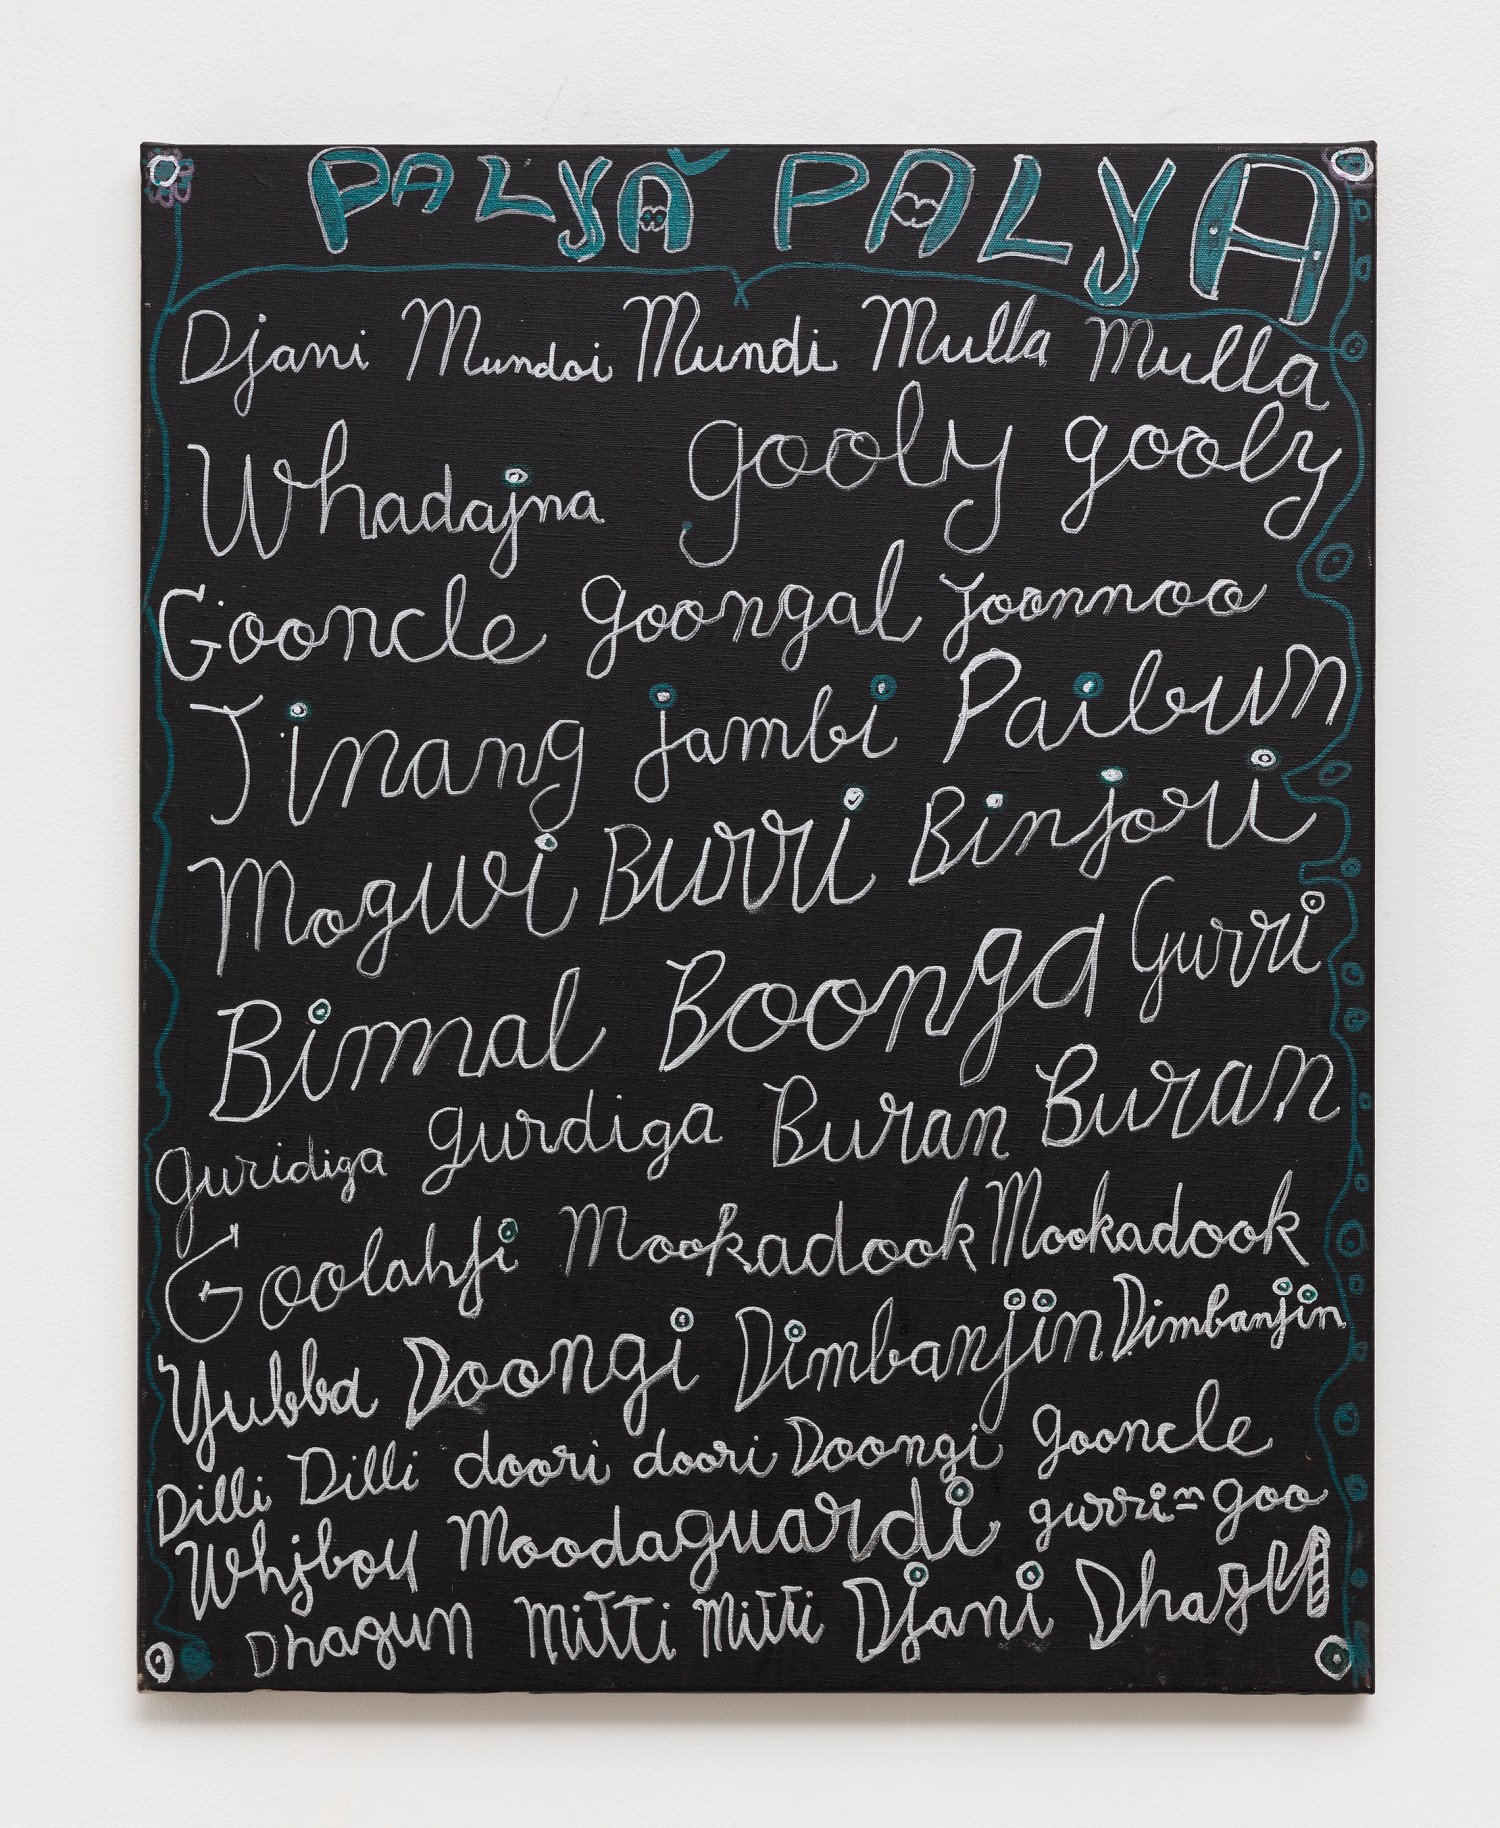 PALYA PALYA
Djani Mundoi Mundi Mulla Mulla
Whadajna gooly gooly
Gooncle goongal joonnoo
Jinang jambi Paibun
Mogwi Burri Binjori
Bimmal Boonga Gurri
guridiga gurdiga Buran Buran
Goolahji Mookadook Mookadook
Yubba Doongi Dimbanjin Dimbanjin
Dilli Dilli doori doori Doongi gooncle
Whjbou Moodaguardi gurri=goo
Dhagun Mitti Mitti Djani Dhagu